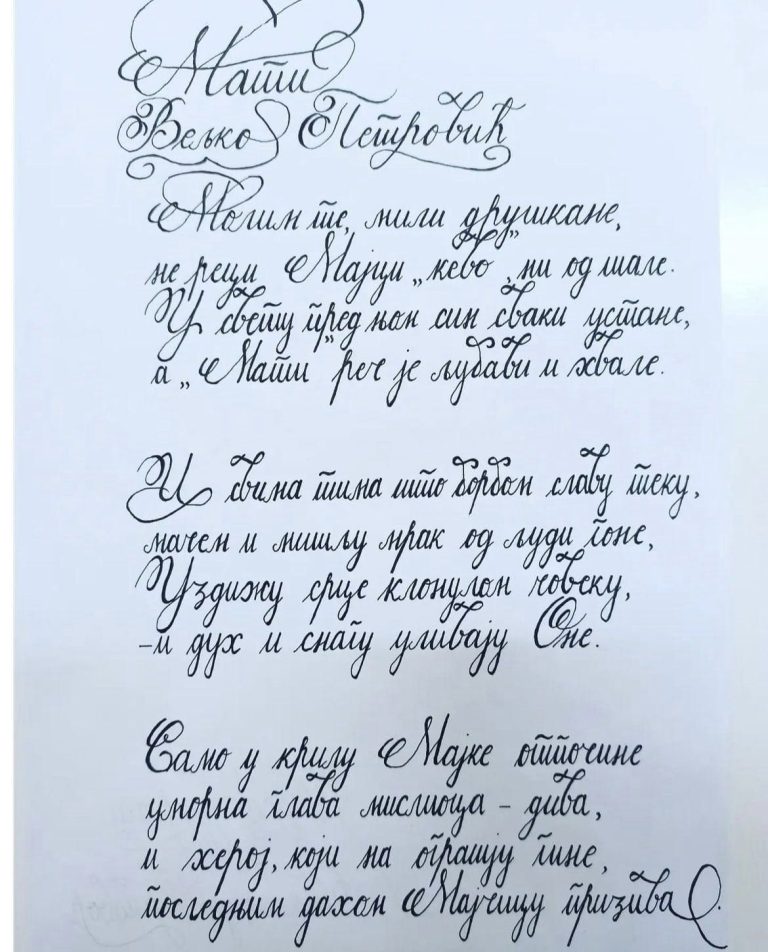 Мати
Вељко Петровић
Молим те, мили друшкане,
не реци Мајци „кево”, ни од шале.
У свету пред њом син сваки устане,
а „Мати” реч је љубави и хвале.
И свима тима што борбом славу теку,
мачем и мишљу мрак од људи гоне,
Уздижу срце клонулом човеку,
-и дух и снагу уливају Оне.
Само у крилу Мајке отпочине
уморна глава мислиоца - дива,
и херој, који на огранку гине,
последњим дахом Мајчицу призива.